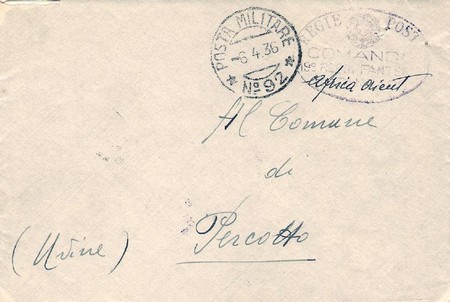 POSTA MILITARE
-6.4.36
★ Nº 92 ★
POST
COMAND
Africa Orient
Al Comune
di
Percotto
(Udine)